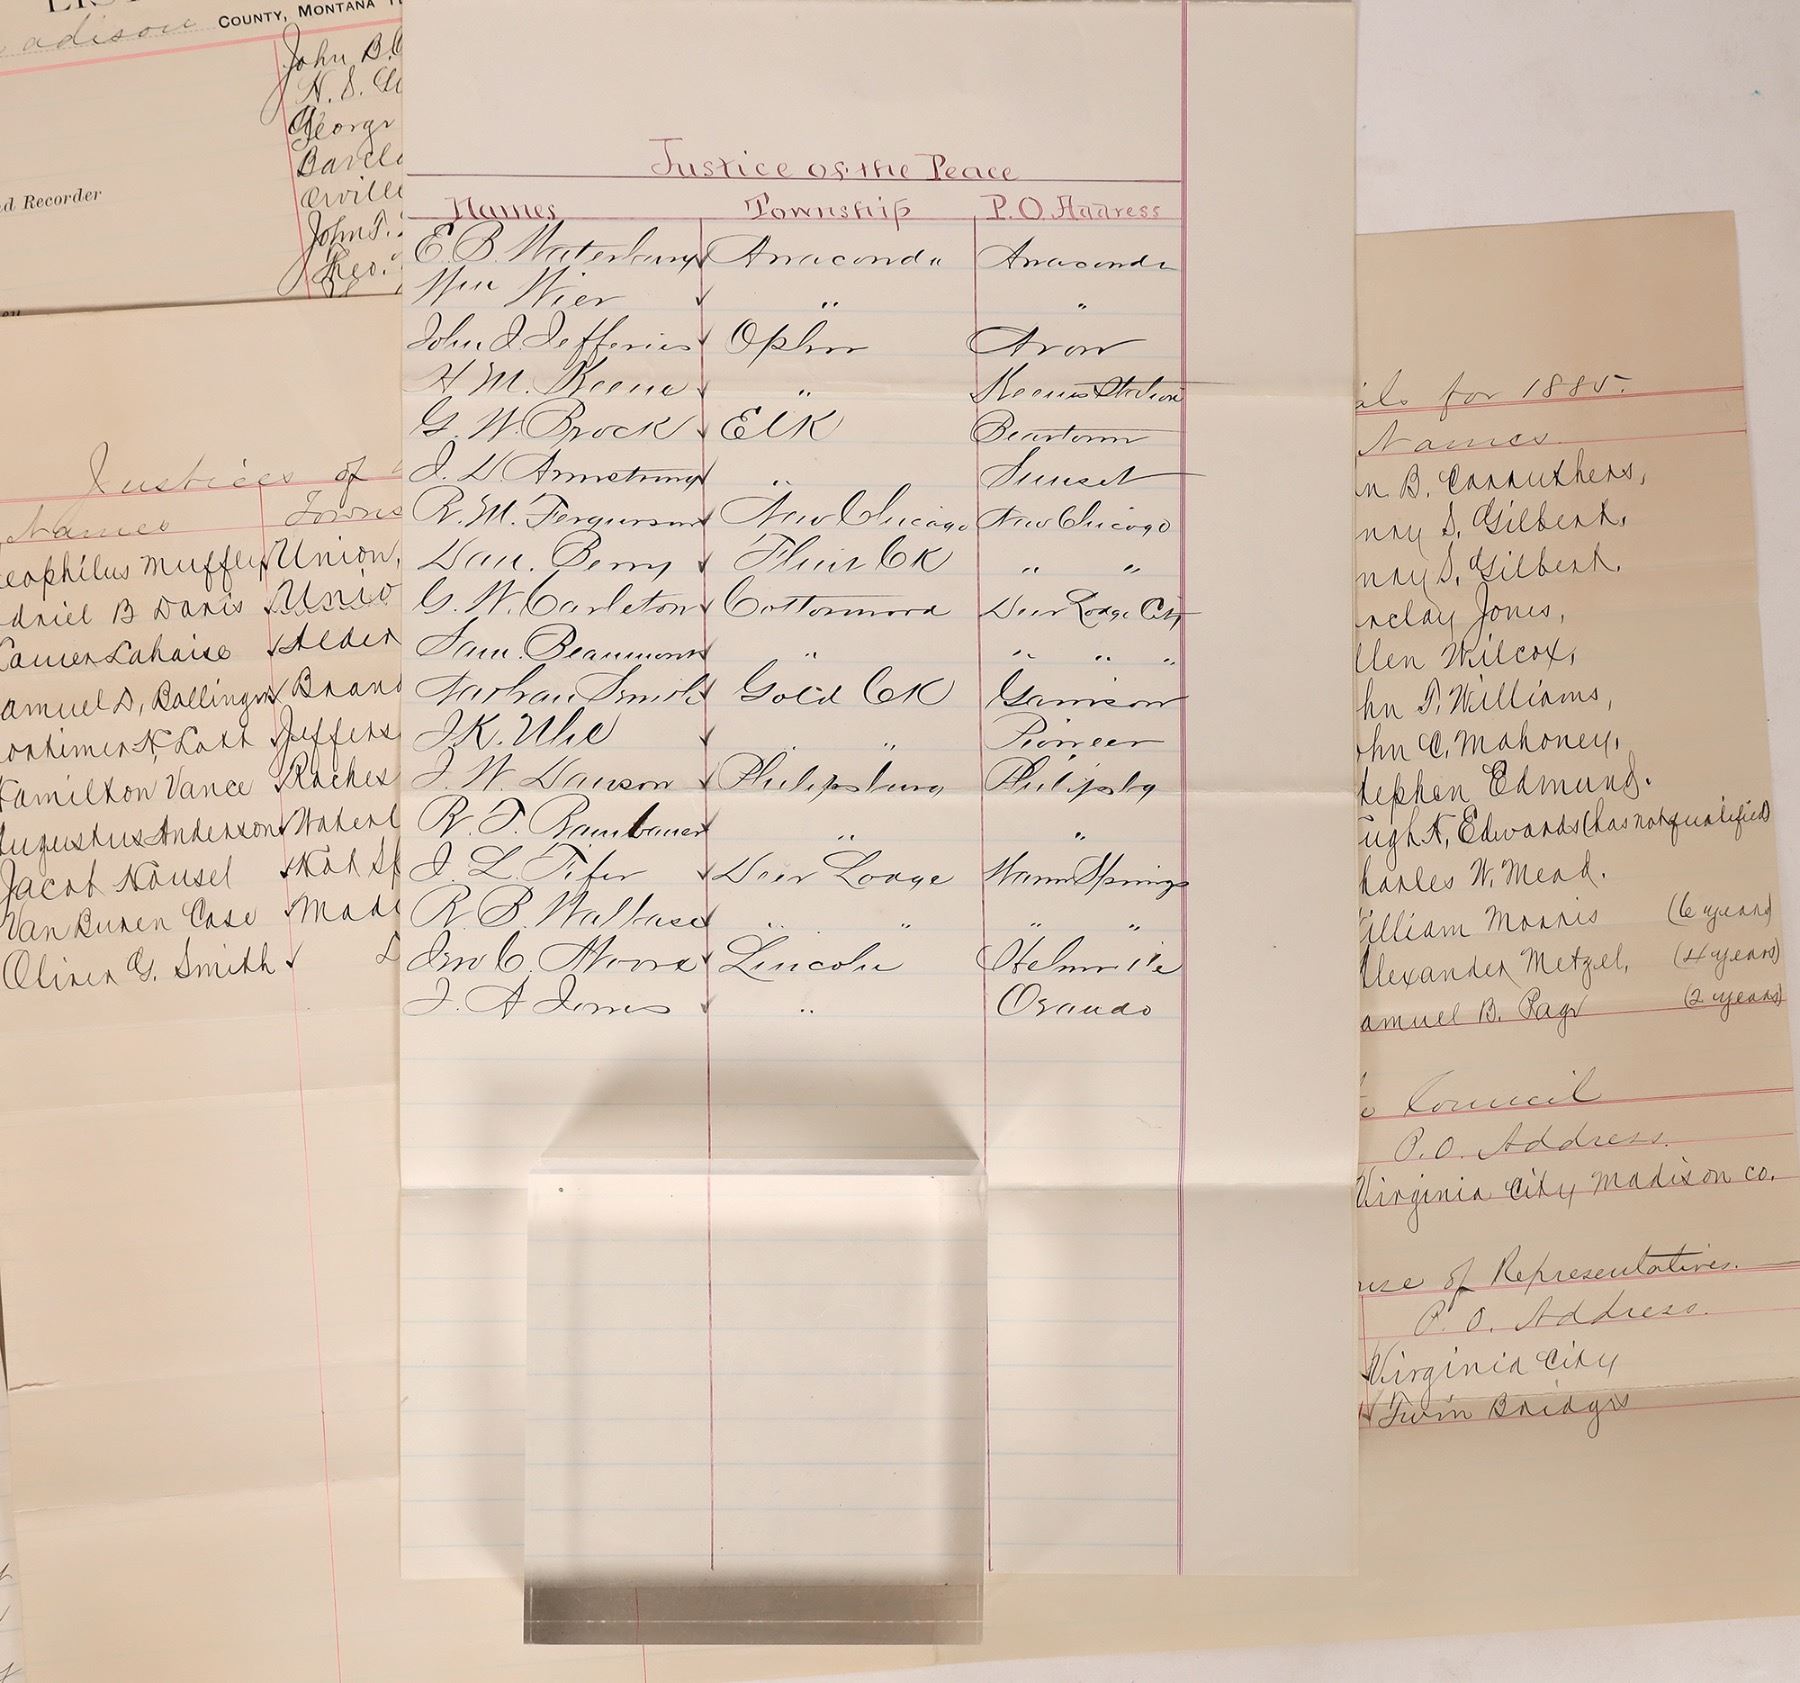 adison COUNTY, MONTANA
John B.
N. S.
George
d Recorder
Barcl
Orville
John T.
Geo.
Justices of
Names Towns
eophilus Muffley Union,
driel B Davis Unio
Lahaise Alder
amuel D, Ballinger Brand
ortimer N. Lott Jeffers
Hamilton Vance Roches
Augustus Anderson Waterl
Jacob Housel Hot Sp
Van Buren Case Madi
Oliver G. Smith
Justice of the Peace
Names Township P.O. Address
E. B. Waterbury Anaconda Anaconda
Wm Wier " "
John J. Jefferies Ophir Avon
H M. Keene " Keenes Station
G. W. Brock Elk Beartown
J. D Armstrong " Sunset
R. M. Ferguson New Chicago New Chicago
Dan. Berry Flint CK " "
G. W. Carleton Cottonwood Deer Lodge City
Sam. Beaumont " " " "
Nathan Smith Gold CK Garrison
J K. " Pioneer
J. W. Dawson Philipsburg Philipsbg
R. T. " "
J. L. Fifer Deer Lodge Warm Springs
R. B. Wallace " " " "
Jno C. Moore Lincoln Helmville
J. A Jones " Ovando
als for 1885.
Names
n B. Carruthers,
nry S. Gilbert,
nry S. Gilbert,
rclay Jones,
llen Wilcox,
hn T. Williams,
ohn C. Mahoney,
tephen Edmunds.
ugh N, Edwards (has not qualified)
harles W. Mead.
illiam Morris (6 years)
lexander Metzel, (4 years)
amuel B. Page (2 years)
Council
P.O. Address.
Virginia City Madison co.
use of Representatives.
P. O. Address.
Virginia City
Twin Bridges